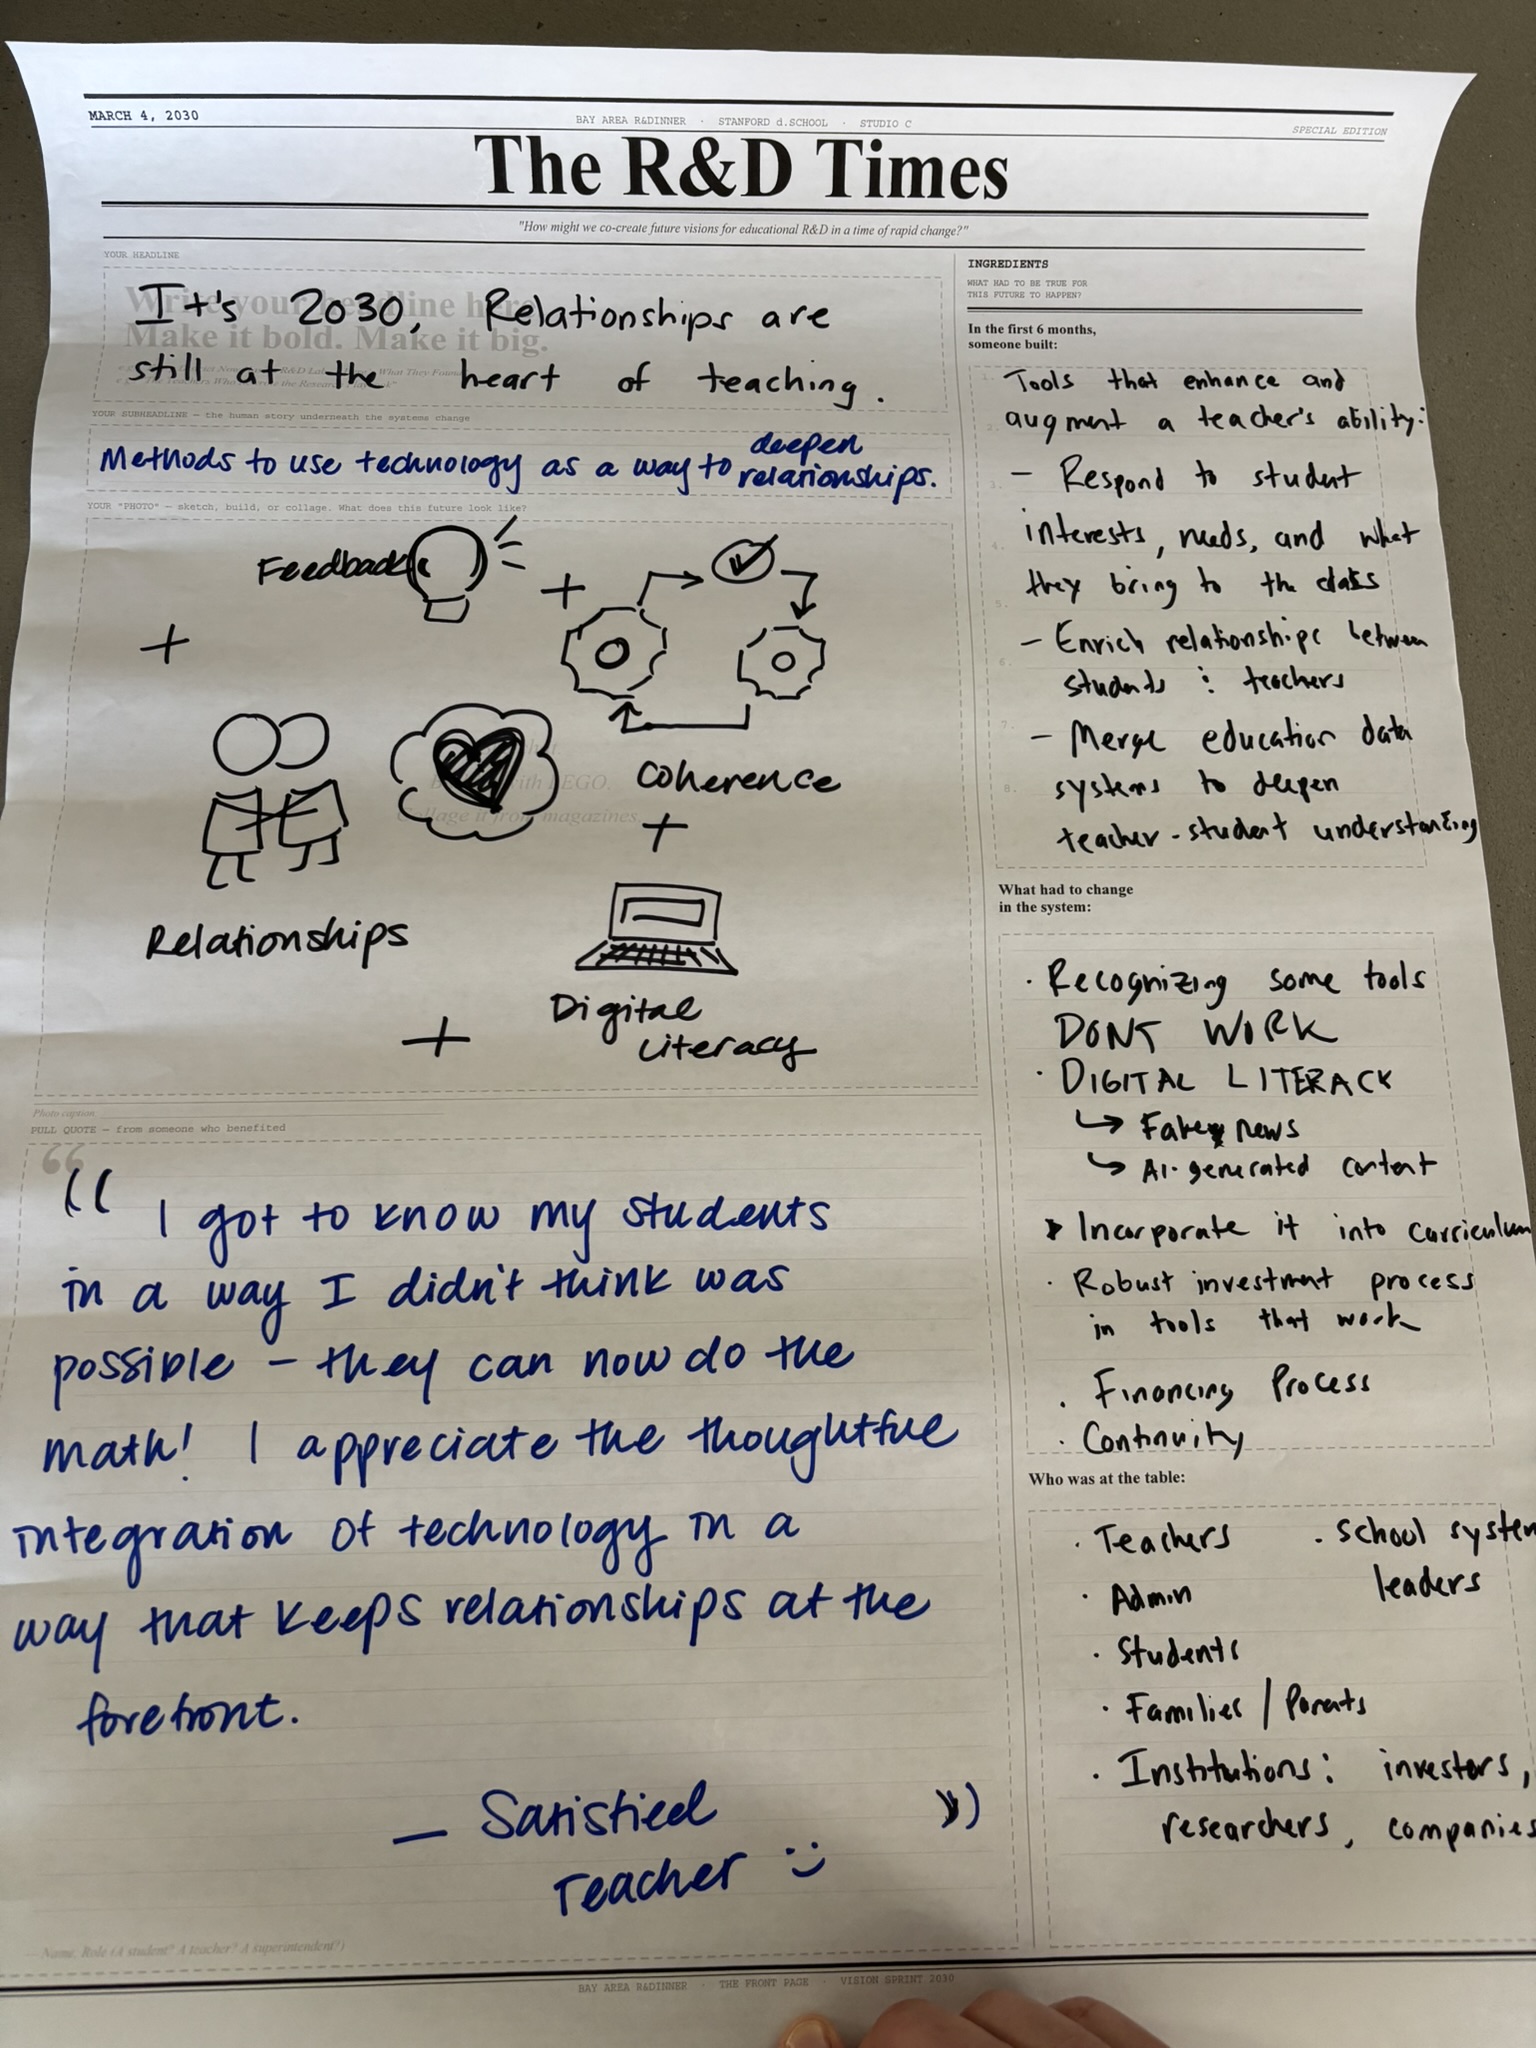 MARCH 4, 2030
BAY AREA R&DINNER · STANFORD d.SCHOOL · STUDIO C
SPECIAL EDITION
The R&D Times
"How might we co-create future visions for educational R&D in a time of rapid change?"
YOUR HEADLINE
Write your headline here.
Make it bold. Make it big.
It's 2030, Relationships are
still at the heart of teaching.
YOUR SUBHEADLINE — the human story underneath the systems change
Methods to use technology as a way to deepen
relationships.
YOUR "PHOTO" — sketch, build, or collage. What does this future look like?
Feedback
+
+
Coherence
+
Relationships
Digital
Literacy
+
Photo caption
PULL QUOTE — from someone who benefited
“
(( I got to know my students
in a way I didn't think was
possible – they can now do the
math! I appreciate the thoughtful
integration of technology in a
way that keeps relationships at the
forefront.
— Satisfied
Teacher :)
))
— Name, Role (A student? A teacher? A superintendent?)
INGREDIENTS
WHAT HAD TO BE TRUE FOR
THIS FUTURE TO HAPPEN?
In the first 6 months,
someone built:
Tools that enhance and
augment a teacher's ability:
– Respond to student
interests, needs, and what
they bring to the class
– Enrich relationships between
students : teachers
– Merge education data
systems to deepen
teacher-student understanding
What had to change
in the system:
· Recognizing some tools
DONT WORK
· DIGITAL LITERACK
↳ Fake news
↳ AI-generated content
Incorporate it into curriculum
· Robust investment process
in tools that work
· Financing Process
· Continuity
Who was at the table:
· Teachers
· Admin
· Students
· Families / Parents
· Institutions: investors,
researchers, companies
· School system
leaders
BAY AREA R&DINNER · THE FRONT PAGE · VISION SPRINT 2030